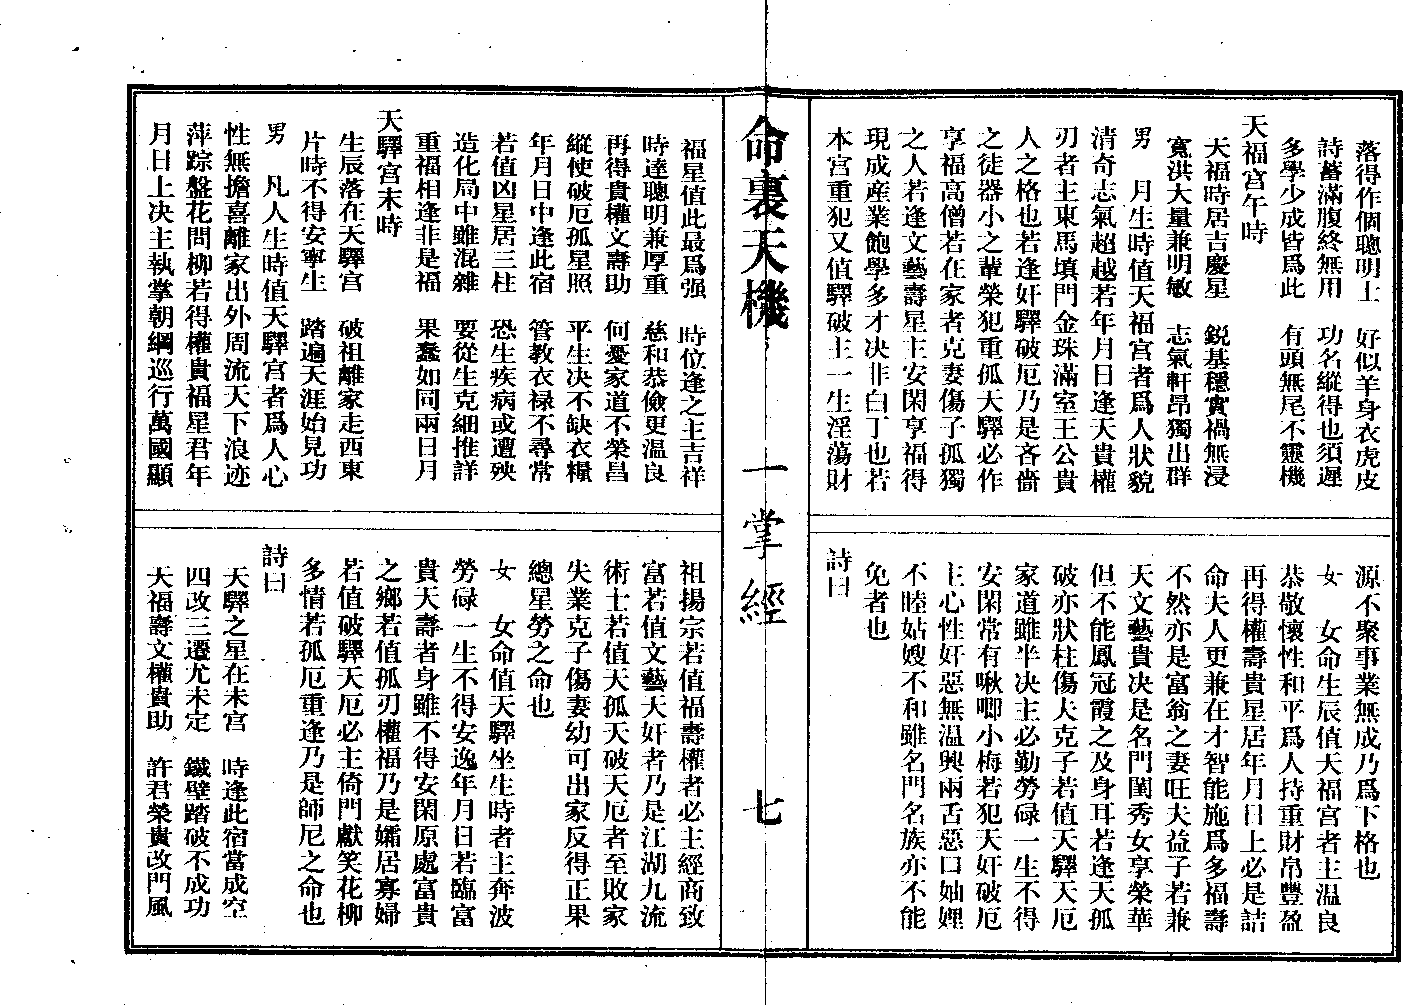 落得作個聰明士　好似羊身衣虎皮
詩蓄滿腹終無用　功名縱得也須遲
多學少成皆爲此　有頭無尾不靈機
天福宮午時
天福時居吉慶星　銳基穩實禍無浸
寬洪大量兼明敏　志氣軒昂獨出群
男　月生時值天福宮者爲人狀貌
清奇志氣超越若年月日逢天貴權
刃者主東馬填門金珠滿室王公貴
人之格也若逢奸驛破厄乃是吝嗇
之徒器小之輩榮犯重孤天驛必作
享福高僧若在家者克妻傷子孤獨
之人若逢文藝壽星主安閑亨福得
現成産業飽學多才决非白丁也若
本宮重犯又值驛破主一生淫蕩財
源不聚事業無成乃爲下格也
女　女命生辰值天福宮者主溫良
恭敬懷性和平爲人持重財帛豐盈
再得權壽貴星居年月日上必是誥
命夫人更兼在才智能施爲多福壽
不然亦是富翁之妻旺夫益子若兼
天文藝貴决是名門閨秀女享榮華
但不能鳳冠霞之及身耳若逢天孤
破亦狀柱傷夫克子若值天驛天厄
家道雖半决主必勤勞碌一生不得
安閑常有啾唧小梅若犯天奸破厄
主心性奸惡無溫興兩舌惡口妯娌
不睦姑嫂不和雖名門名族亦不能
免者也
詩曰
命裏天機
一掌經
七
福星值此最爲强　時位逢之主吉祥
時達聰明兼厚重　慈和恭儉更溫良
再得貴權文壽助　何憂家道不榮昌
縱使破厄孤星照　平生决不缺衣糧
年月日中逢此宿　管教衣祿不尋常
若值凶星居三柱　恐生疾病或遭殃
造化局中雖混雜　要從生克細推詳
重福相逢非是福　果蠢如同兩日月
天驛宮未時
生辰落在天驛宮　破祖離家走西東
片時不得安寧生　踏遍天涯始見功
男　凡人生時值天驛宮者爲人心
性無擔喜離家出外周流天下浪迹
萍踪盤花問柳若得權貴福星君年
月日上决主執掌朝綱巡行萬國顯
祖揚宗若值福壽權者必主經商致
富若值文藝天奸者乃是江湖九流
術士若值天孤天破天厄者至敗家
失業克子傷妻幼可出家反得正果
總星勞之命也
女　女命值天驛坐生時者主奔波
勞碌一生不得安逸年月日若臨富
貴天壽者身雖不得安閑原處富貴
之鄉若值孤刃權福乃是孀居寡婦
若值破驛天厄必主倚門獻笑花柳
多情若孤厄重逢乃是師尼之命也
詩曰
天驛之星在未宮　時逢此宿當成空
四改三遷尤未定　鐵壁踏破不成功
大福壽文權貴助　許君榮貴改門風